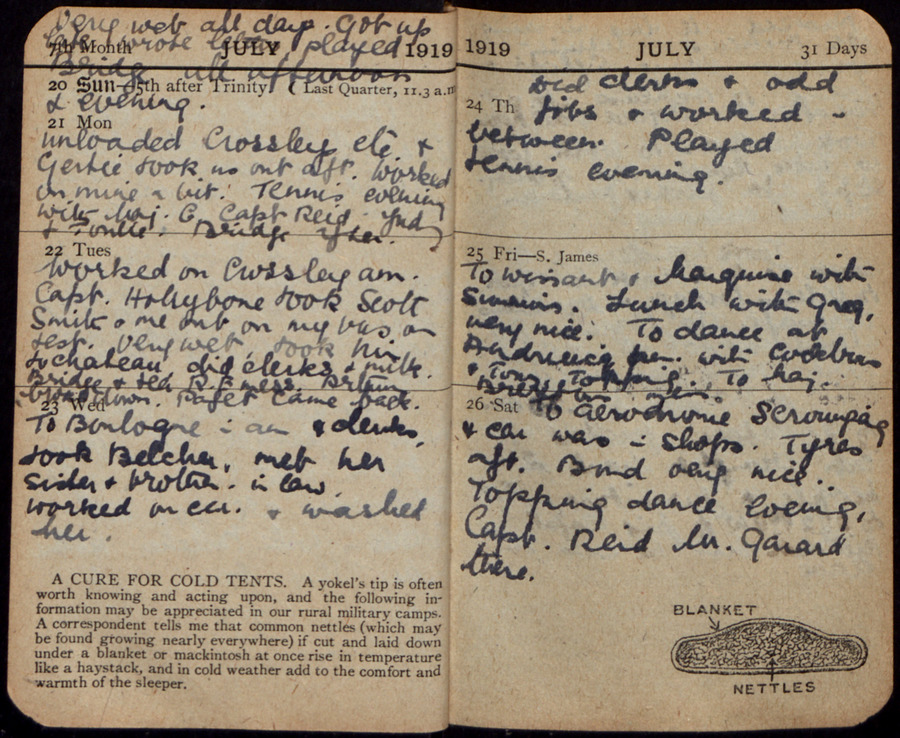 Very wet all day. Got up
late wrote letters played
7th Month JULY 1919
Bridge all afternoon
20 Sun—5th after Trinity (Last Quarter, 11.3 a.m
& evening.
21 Mon
unloaded Crossley etc &
Gertie took us out aft. Worked
on mine a bit. Tennis evening
with Maj. G. Capt Reid
& Bridge after.
22 Tues
Worked on Crossley am.
Capt. Hollybone took Scott
Smith & me out on my bus on
test. Very wet took him
to chateau did clerks & milk.
Bridge & tea R.E. mess.
down. came back.
23 Wed
To Boulogne in am & clerks,
took Belcher, met her
sister & brother in law.
worked on car. & washed
her.
A CURE FOR COLD TENTS. A yokel's tip is often
worth knowing and acting upon, and the following in-
formation may be appreciated in our rural military camps.
A correspondent tells me that common nettles (which may
be found growing nearly everywhere) if cut and laid down
under a blanket or mackintosh at once rise in temperature
like a haystack, and in cold weather add to the comfort and
warmth of the sleeper.
1919 JULY 31 Days
Did clerks & odd
24 Th jobs & worked -
between. Played
tennis evening.
25 Fri—S. James
To Wissant & Marquise with
Simmins. Lunch with Greg,
very nice. To dance at
with
& Topping. To Maj.
26 Sat To aerodrome Scrounging
& car was in shops. Tyres
aft. Band very nice.
Topping dance evening,
Capt. Reid Mr. Garard
there.
BLANKET
NETTLES